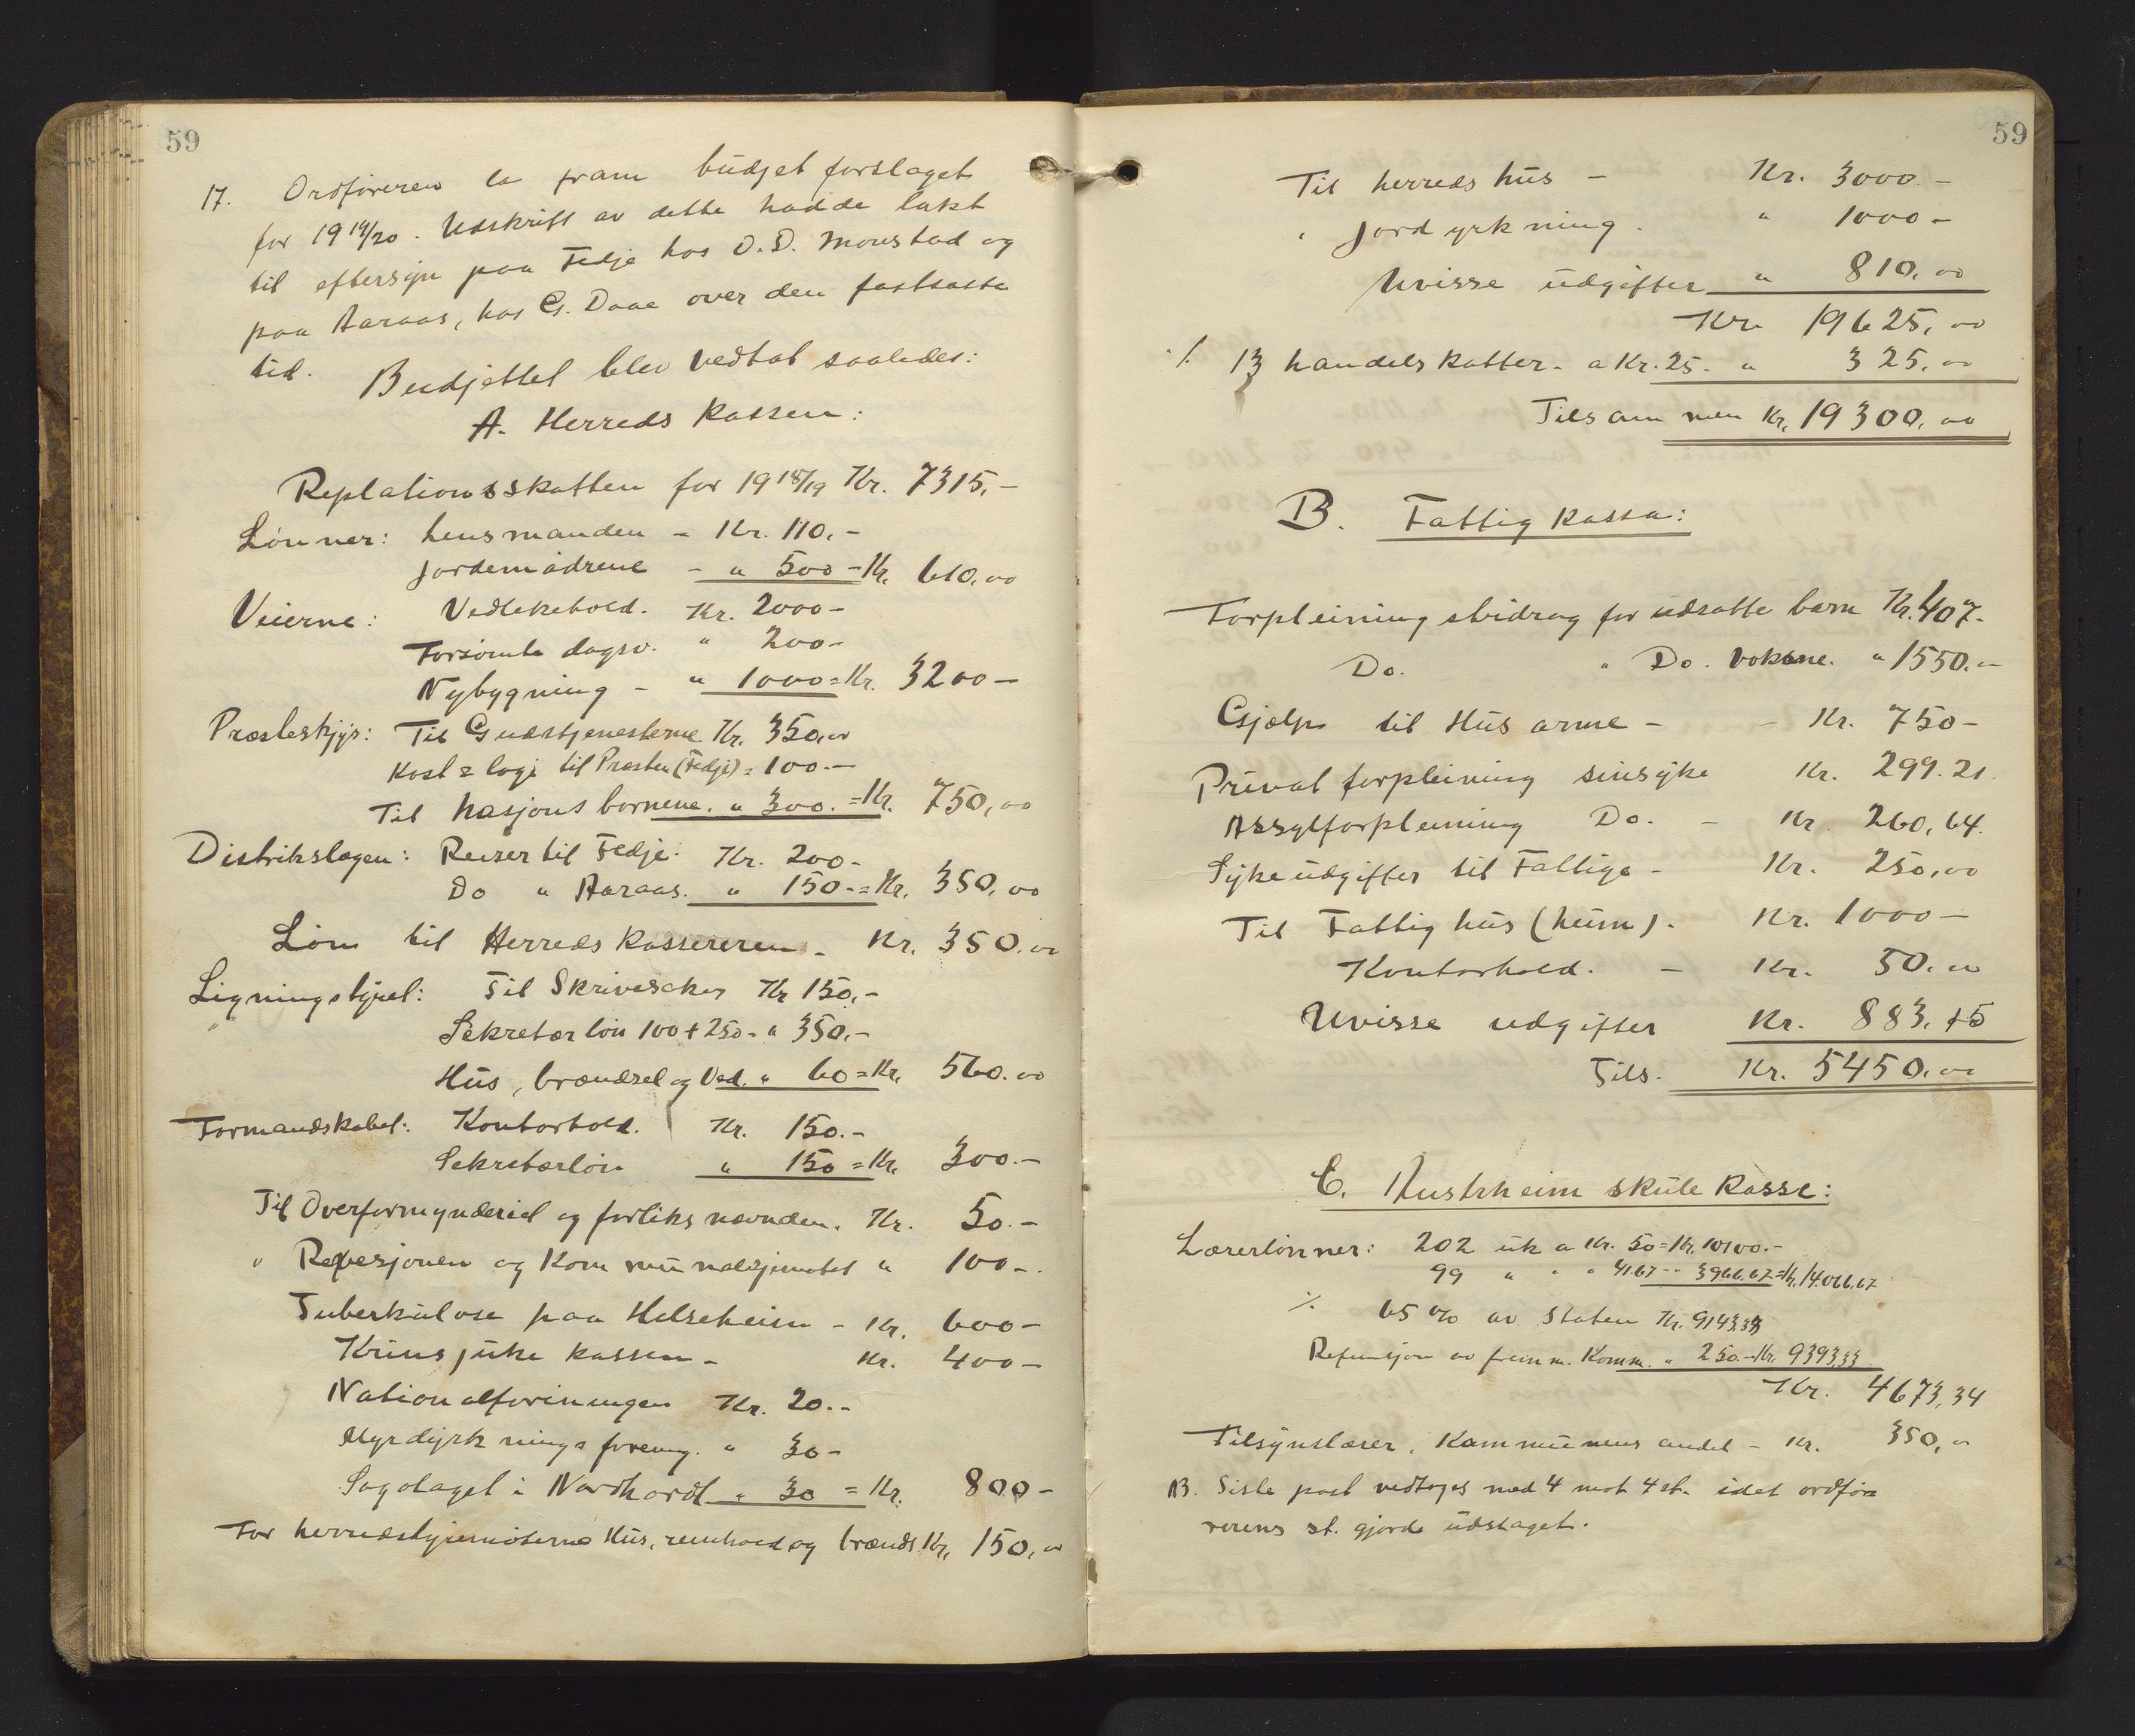 59
17. Ordföreren la fram budjet forslaget
for 19 19/20. Udskrift av dette hadde lukt
til eftersyn paa Fedje hos O. D. Monstad og
paa Aaraas, hos G. Daae over den fastsatte
tid.
Budjettet blev vedtat saaledes:
A. Herreds kassen:
Replationsskatten for 19 18/19 Kr. 7315,-
Lönner: lensmanden - Kr. 110,-
jordemödrene - " 500 - Kr. 610,00
Veierne: Vedlikehold. Kr. 2000-
Forsömte dagsv. " 200-
Nybygning - " 1000 = Kr. 3200-
Præsteskyss: Til Gudstjenesterne Kr. 350,00
Kost & logi til Præsten (Fedje) = 100.-
Til Nasjons bornene. " 300. = Kr. 750,00
Distrikslægen: Reiser til Fedje. Kr. 200-
Do " Aaraas. " 150.- = Kr. 350,00
Lön til Herreds kassereren - Kr. 350.00
Ligningstyret: Til Skrivesaker Kr 150,-
Sekretær lön 100 + 250 - " 350,-
Hüs, brændsel og Ved. " 60 = Kr. 560.00
Formandskabet: Kontorhold. Kr. 150.-
Sekretærlön " 150 = Kr. 300.-
Til Overformynderiet og forliks nævnden. Kr. 50.-
" Revesjonen og Kommunalsjimotet " 100-.
Tuberkulose paa Helseheim - Kr. 600-
Krinsjuke kassen - Kr. 400-
Nationalforiningen Kr. 20.-
Myrdyrknings forenng. " 30-
Sogolaget i Nordhordl. " 30 = Kr. 800-
For herredstyremöterne Hüs, reinhold og brænds Kr. 150,00
59
Til herreds hüs - Kr. 3000.-
" Jord yrkning. " 1000-
Uvisse üdgifter " 810,00
Kr. 19625,00
% 13 handelskatter - a Kr. 25 - " 325,00
Tilsammen Kr. 19300,00
B. Fattig kassa:
Forpleiningsbidrag for udsatte barn Kr. 407.-
Do. " Do. voksne. " 1550.-
Gjælp til Hüs arme - - Kr. 750-
Privat forpleining sinsyke Kr. 299.21.
Assylforpleining Do. - Kr. 260,64.
Sykeüdgifter til Fattige - Kr. 250,00
Til Fattig hüs (heim). Kr. 1000-
Kontorhold. - Kr. 50.00
Uvisse udgifter Kr. 883,15
Tils. Kr. 5450,00
C. Austrheim skule kasse:
Lærerlönner: 202 uk a Kr. 50 = Kr. 10100.-
99 " " " 41.67 - - 3966,67 = Kr. 14.066,67
% 65 % av Staten Kr. 9143,33
Refunsjon av fremm. Komm. " 250.- Kr. 9393,33
Kr. 4673,34
Tilsynslærer, Kommunens andel - Kr. 350,00
NB. Siste post vedtoges med 4 mot 4 st. idet ordföre
rerens st. gjorde üdslaget.